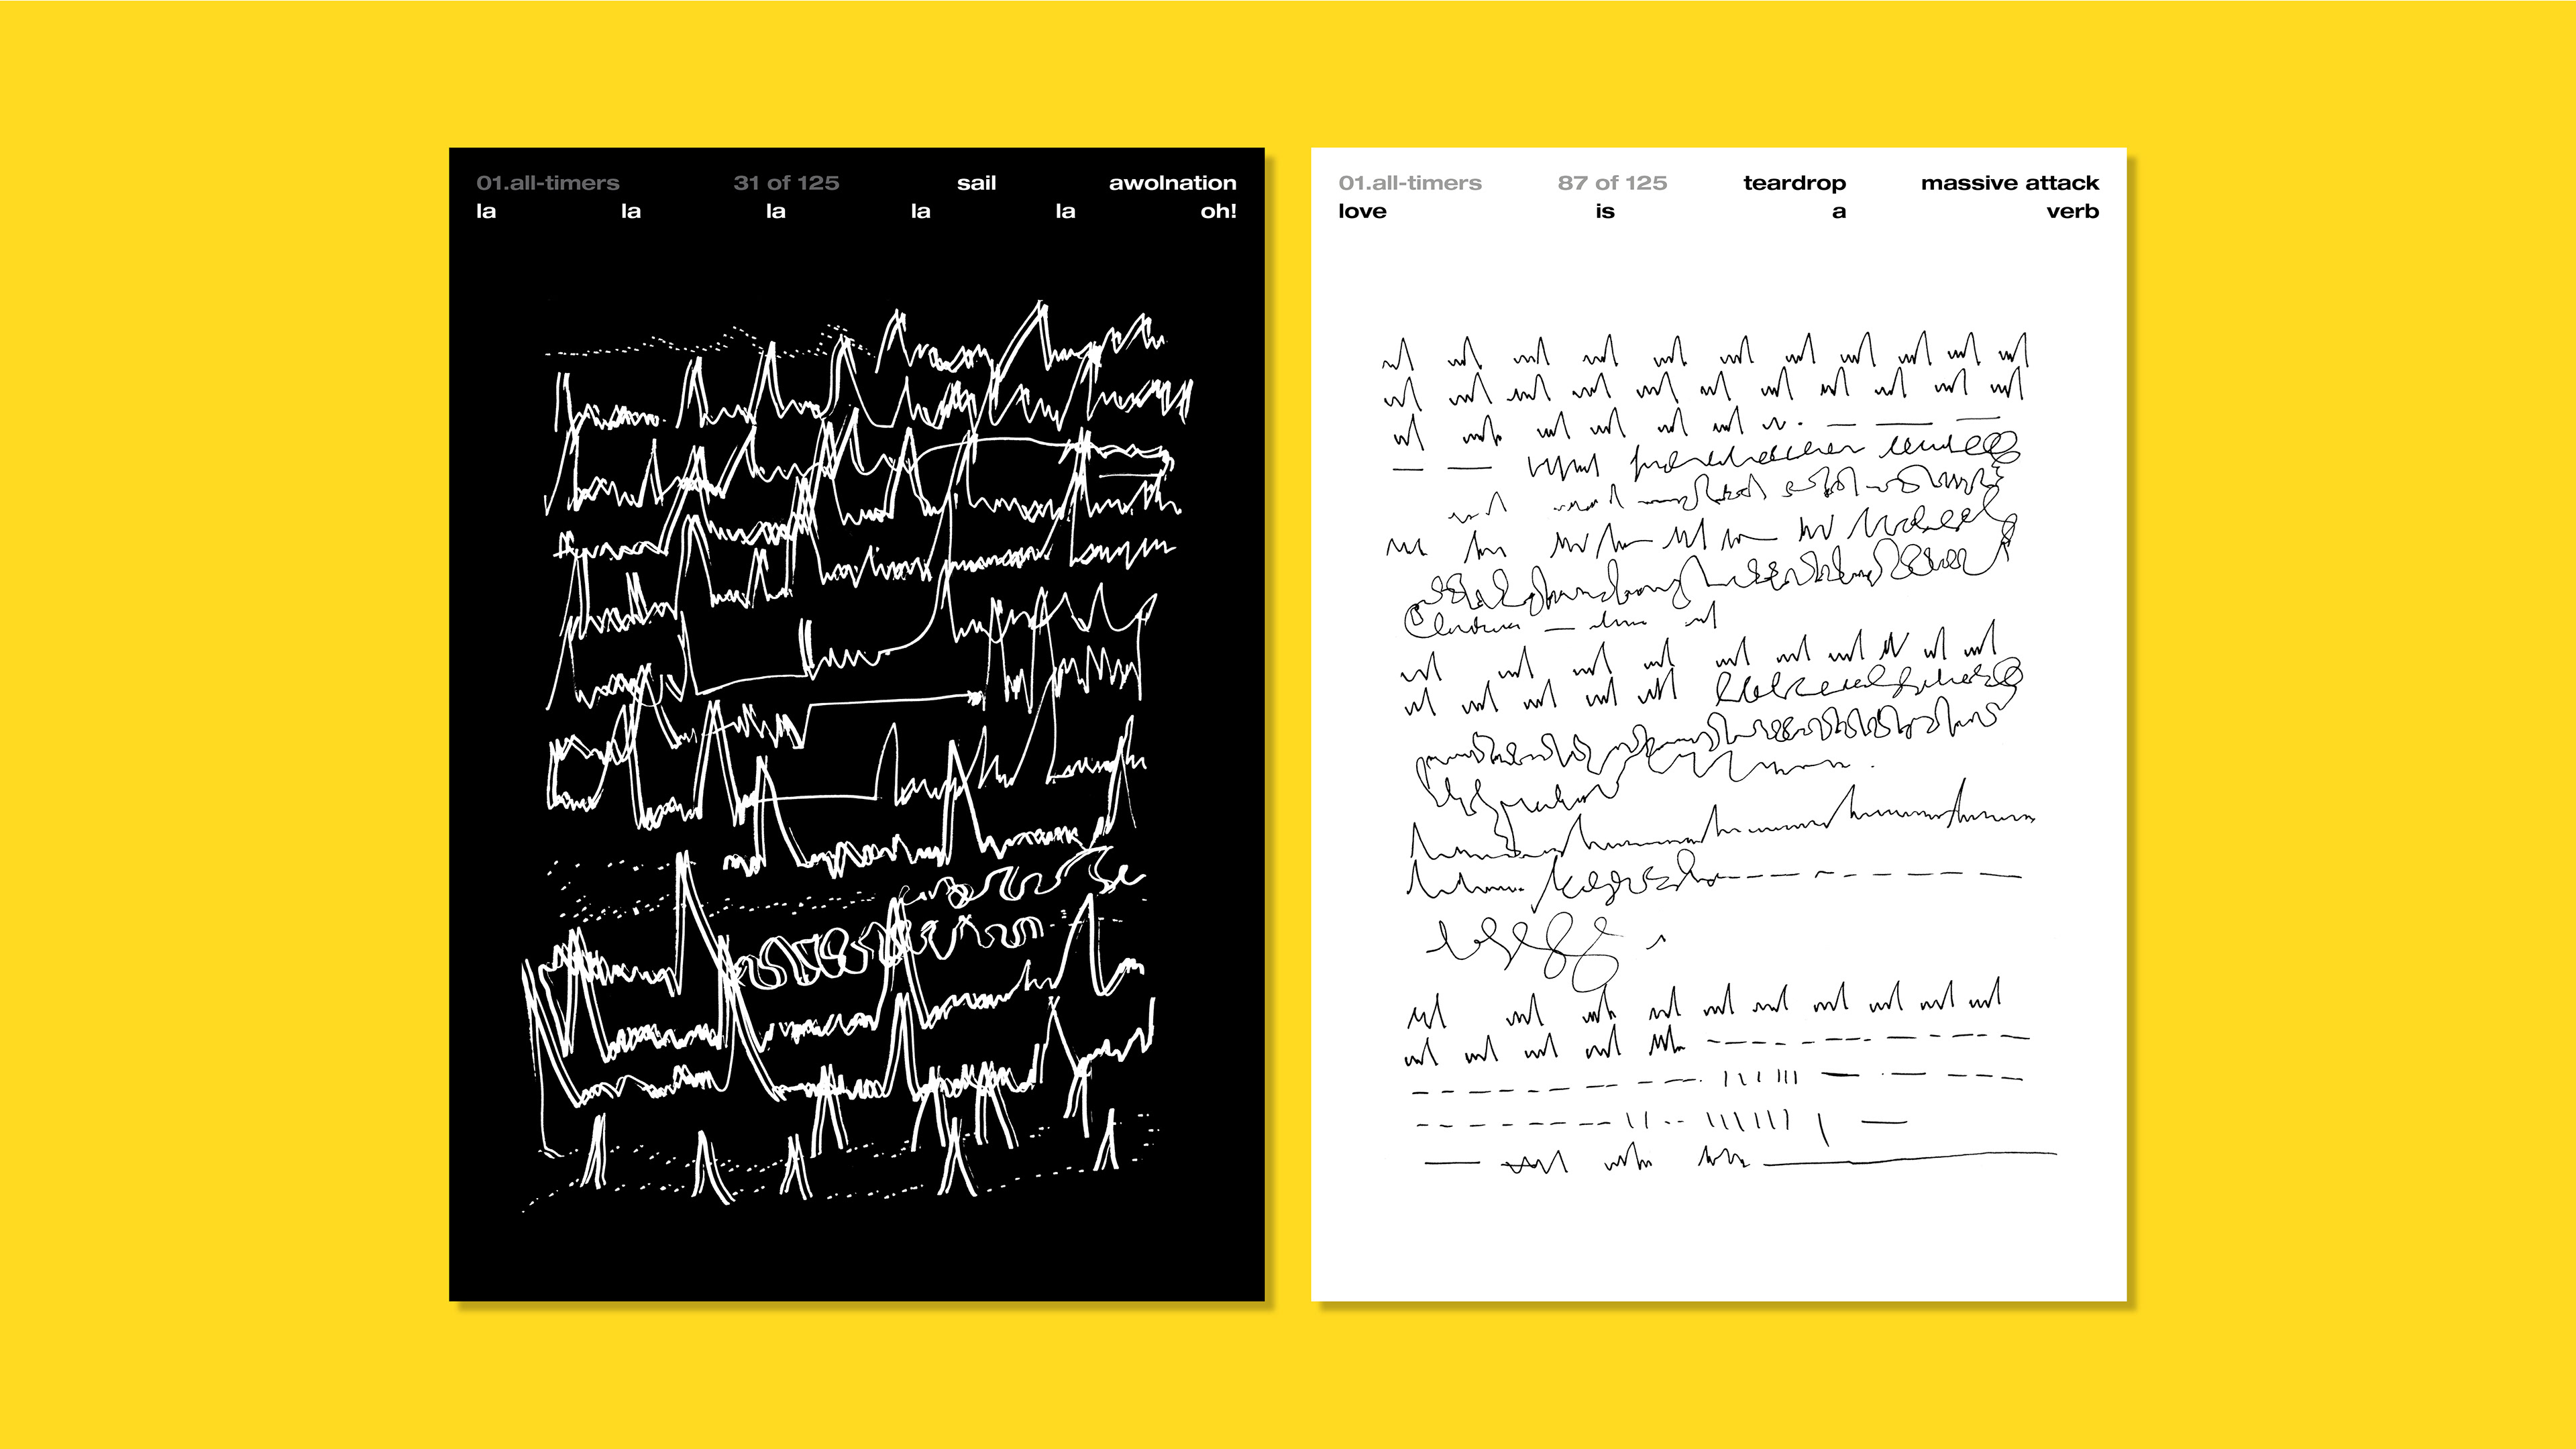 01.all-timers 31 of 125 sail awolnation
la la la la la oh!
01.all-timers 87 of 125 teardrop massive attack
love is a verb